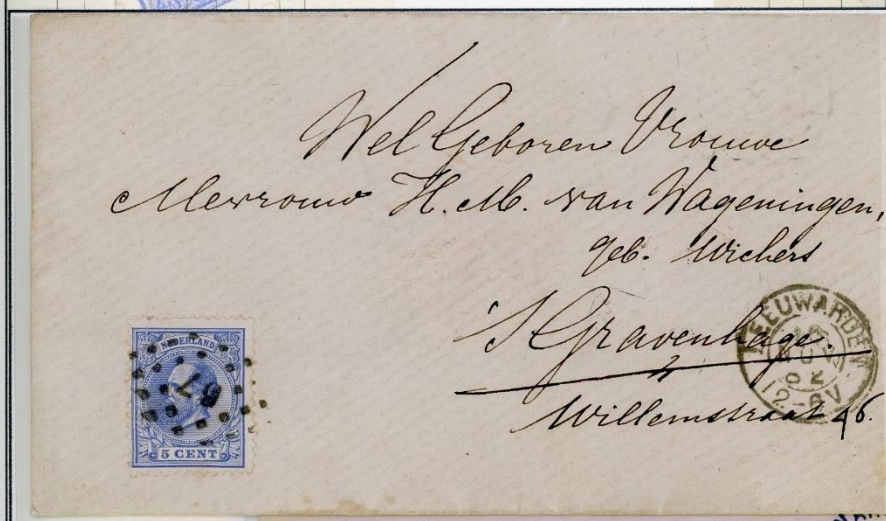 Wel Geboren Vrouwe
Mevrouw H. M. van Wageningen,
geb. Wichers
's Gravenhage.
Willemstraat 46.
NEDERLAND
67
5 CENT
LEEUWARDEN
12-8V